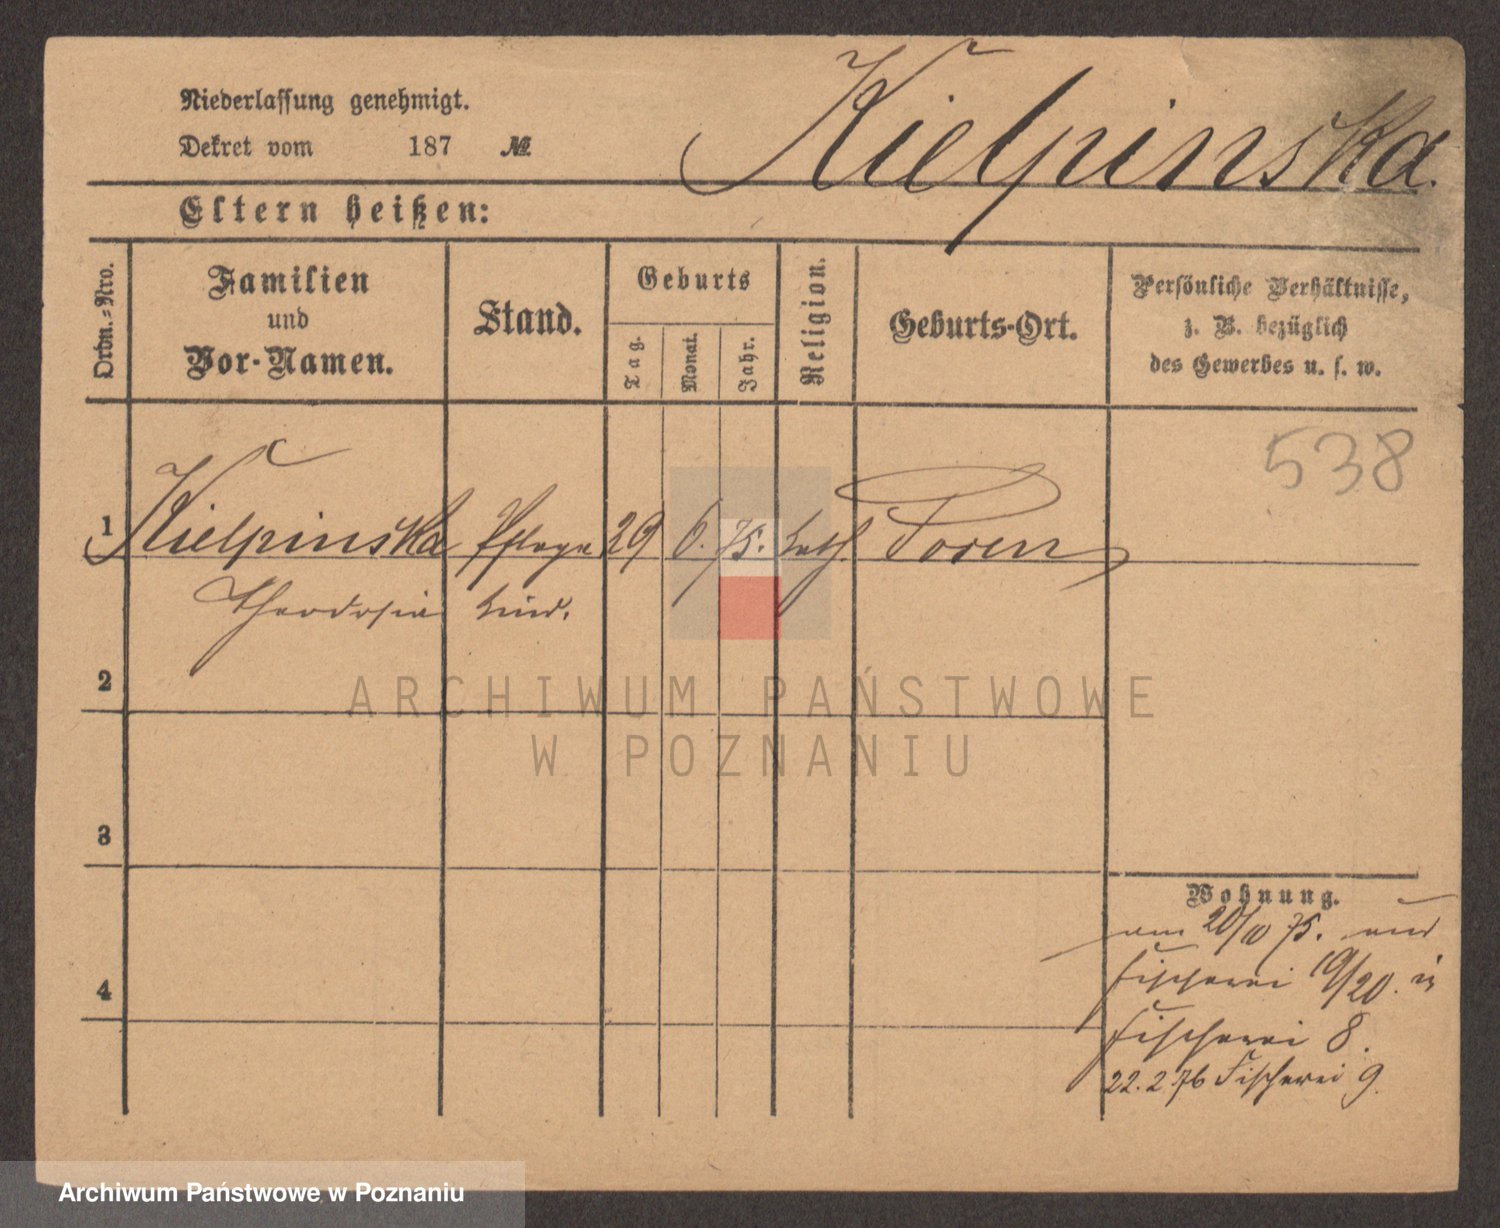 Kielpinska.
Niederlassung genehmigt.
Dekret vom 187 №
Eltern heißen:
Ordn.-Nro.
Familien
und
Vor-Namen.
Stand.
Geburts
Tag.
Monat.
Jahr.
Religion.
Geburts-Ort.
Persönliche Verhältnisse,
z. B. bezüglich
des Gewerbes u. s. w.
538
1 Kielpinska Pflege 29 6. 75. kath. Posen
Theodosia kind.
2
3
4
Wohnung.
am 20/10 75. aus
Fischerei 19/20. in
Fischerei 8.
22.2.76 Fischerei 9.
ARCHIWUM PAŃSTWOWE
W POZNANIU
Archiwum Państwowe w Poznaniu